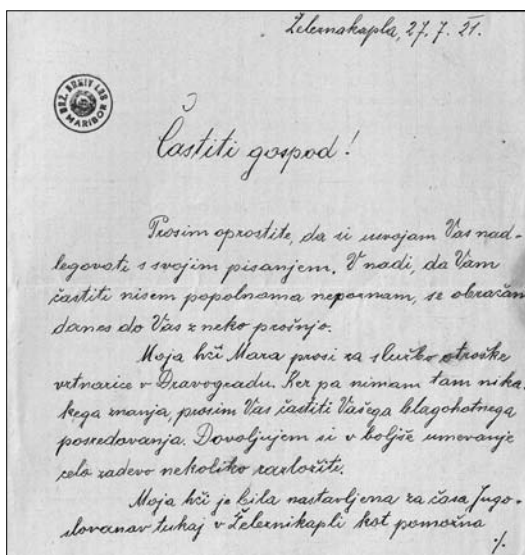 Železnakapla, 27. 7. 21.
DRŽ. ARHIV LRS
MARIBOR
Častiti gospod!
Prosim oprostite, da si usvojam Vas nad-
legovati s svojim pisanjem. V nadi, da Vam
častiti nisem popolnoma nepoznam, se obračam
danes do Vas z neko prošnjo.
Moja hči Mara prosi za službo otroške
vrtnarice v Dravogradu. Ker pa nimam tam nika-
kega znanja, prosim Vas častiti Vašega blagohotnega
posredovanja. Dovoljujem si v boljše umevanje
celo zadevo nekoliko razložiti.
Moja hči je bila nastavljena za časa Jugo-
slovanov tukaj v Železnikapli kot pomožna
./.